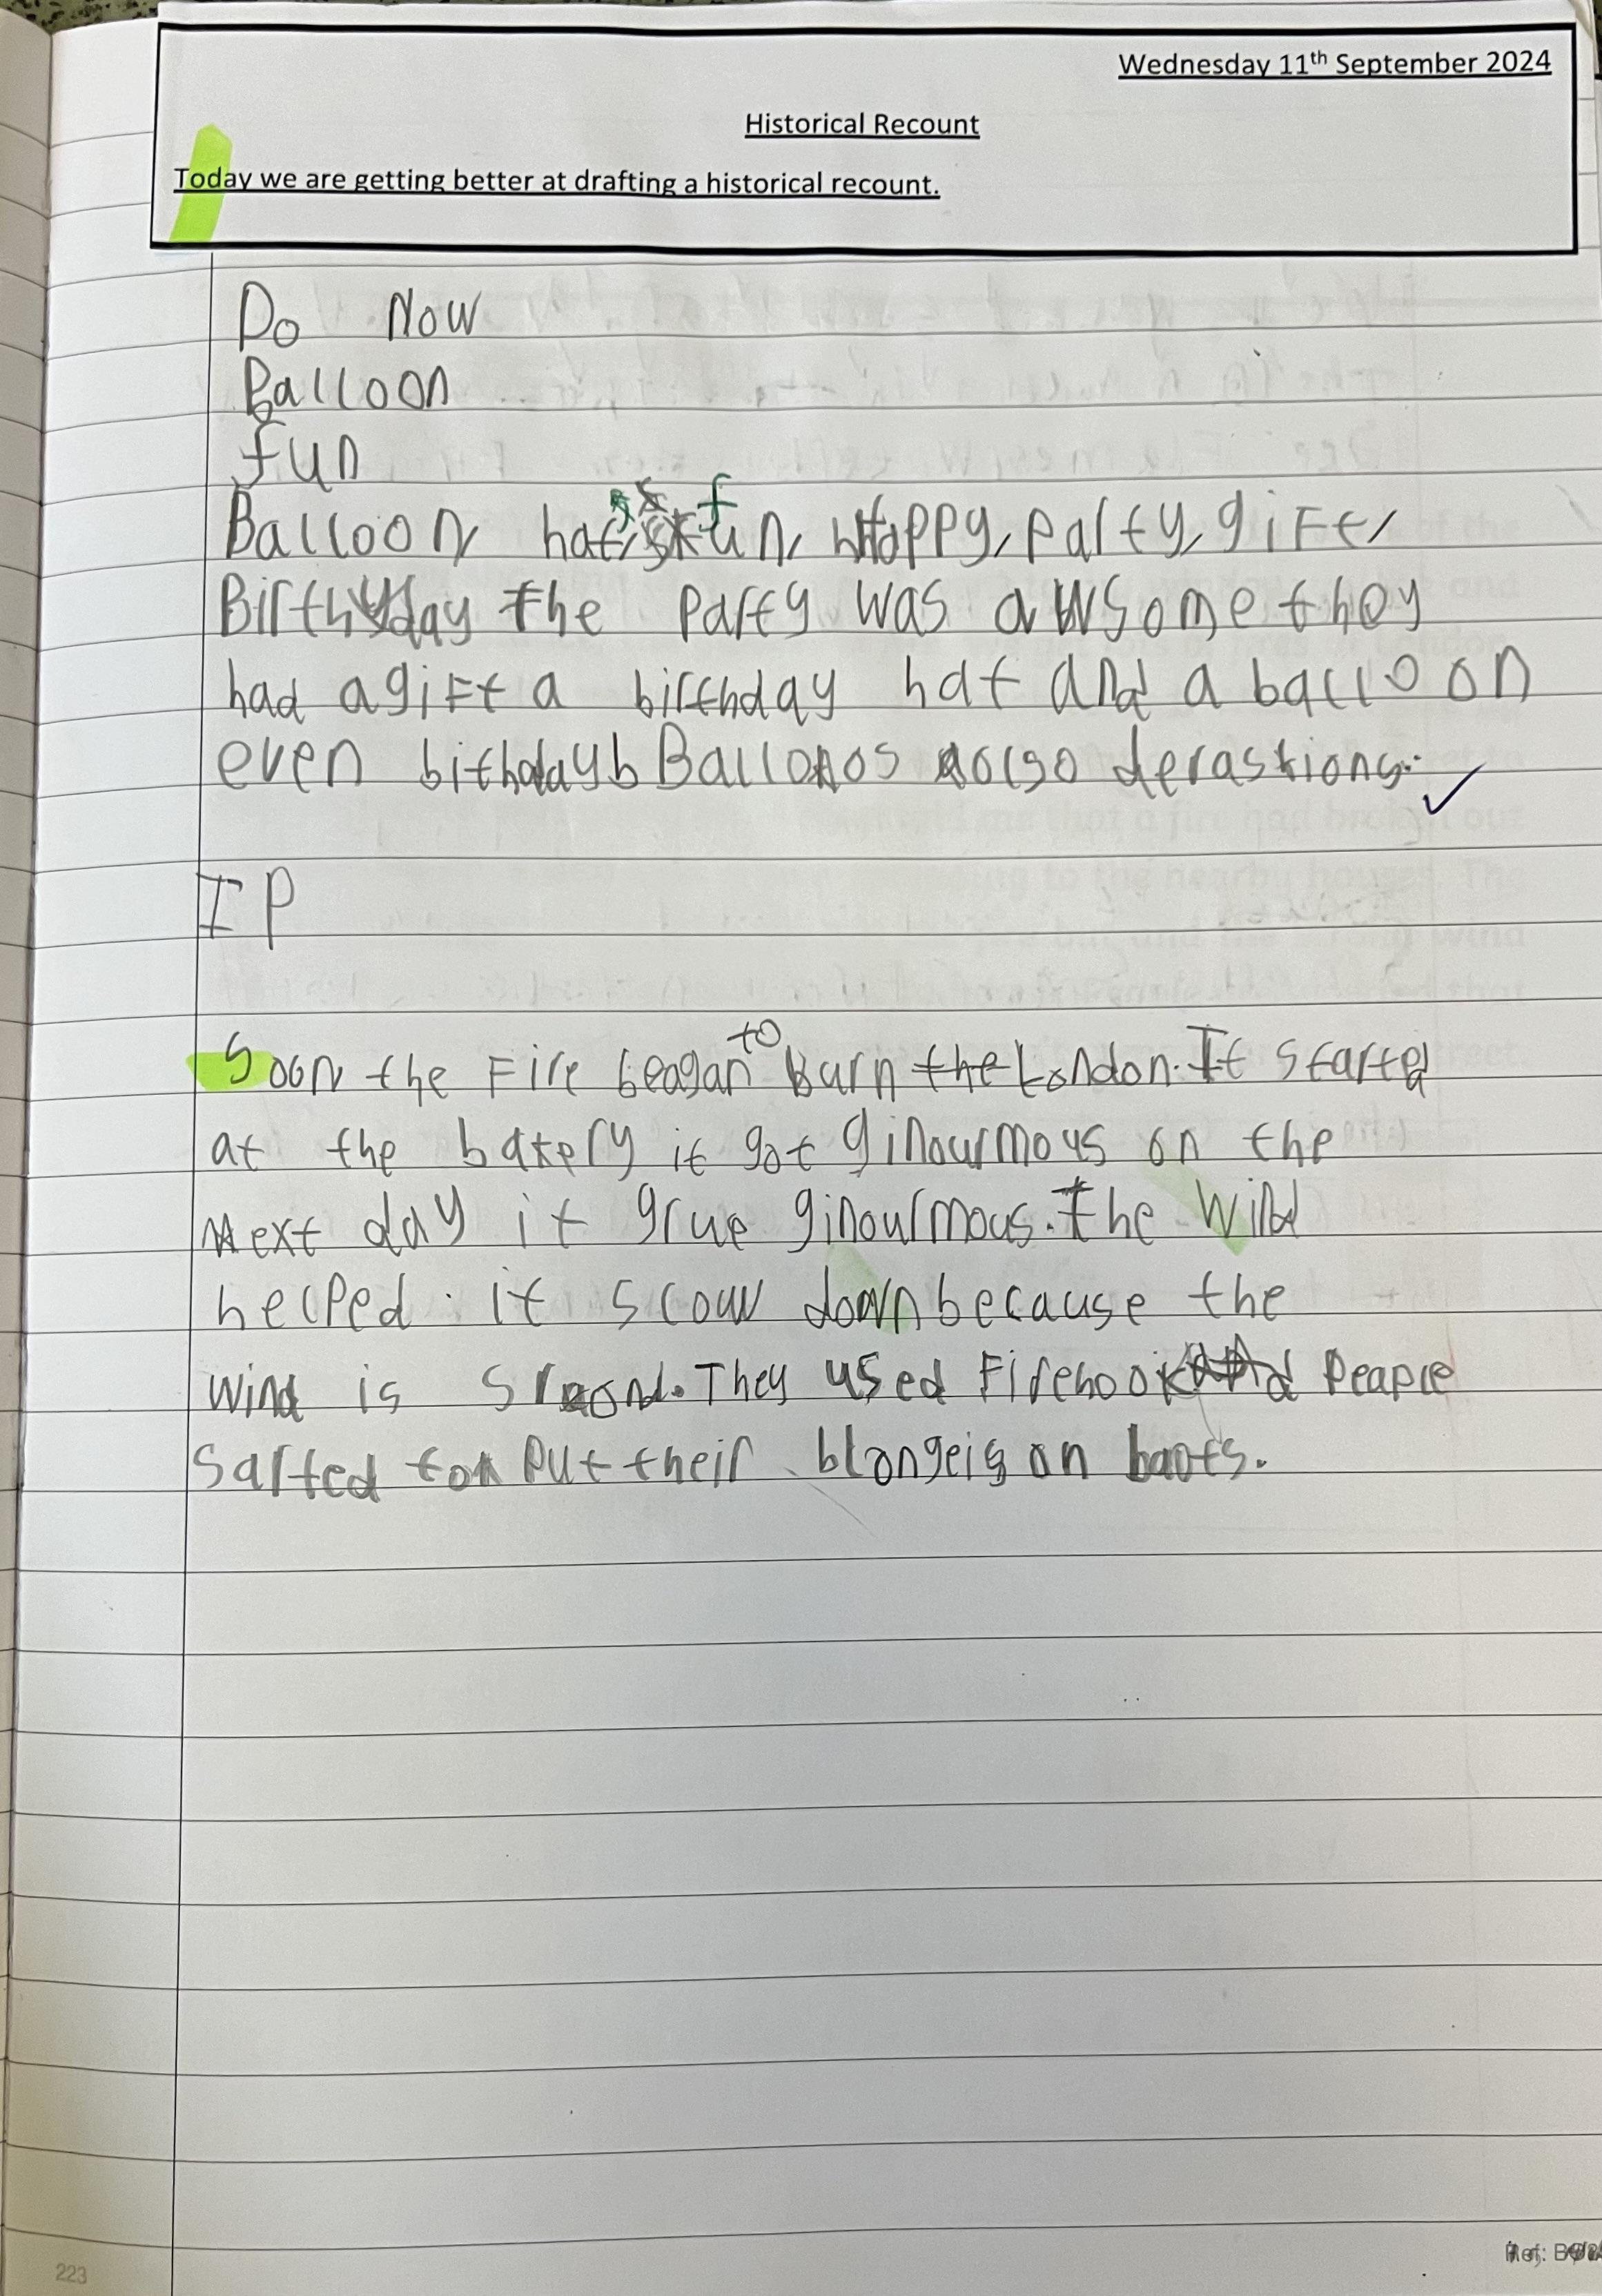 Wednesday 11th September 2024
Historical Recount
Today we are getting better at drafting a historical recount.
Do Now
Balloon
fun
Balloon, hat, fun, Happy, party, gift,
Birthday The party was awsome they
had a gift a birthday hat and a balloon
even bithday Ballonos aolso derastions.
IP
Soon the Fire beagan to burn the London. It started
at the bakery it got ginourmous on the
Next day it grue ginourmous. The wind
helped. it slouw down because the
wind is . They used Firehook and Peaple
sarted to put their blongeis on baots.
223
Ref: